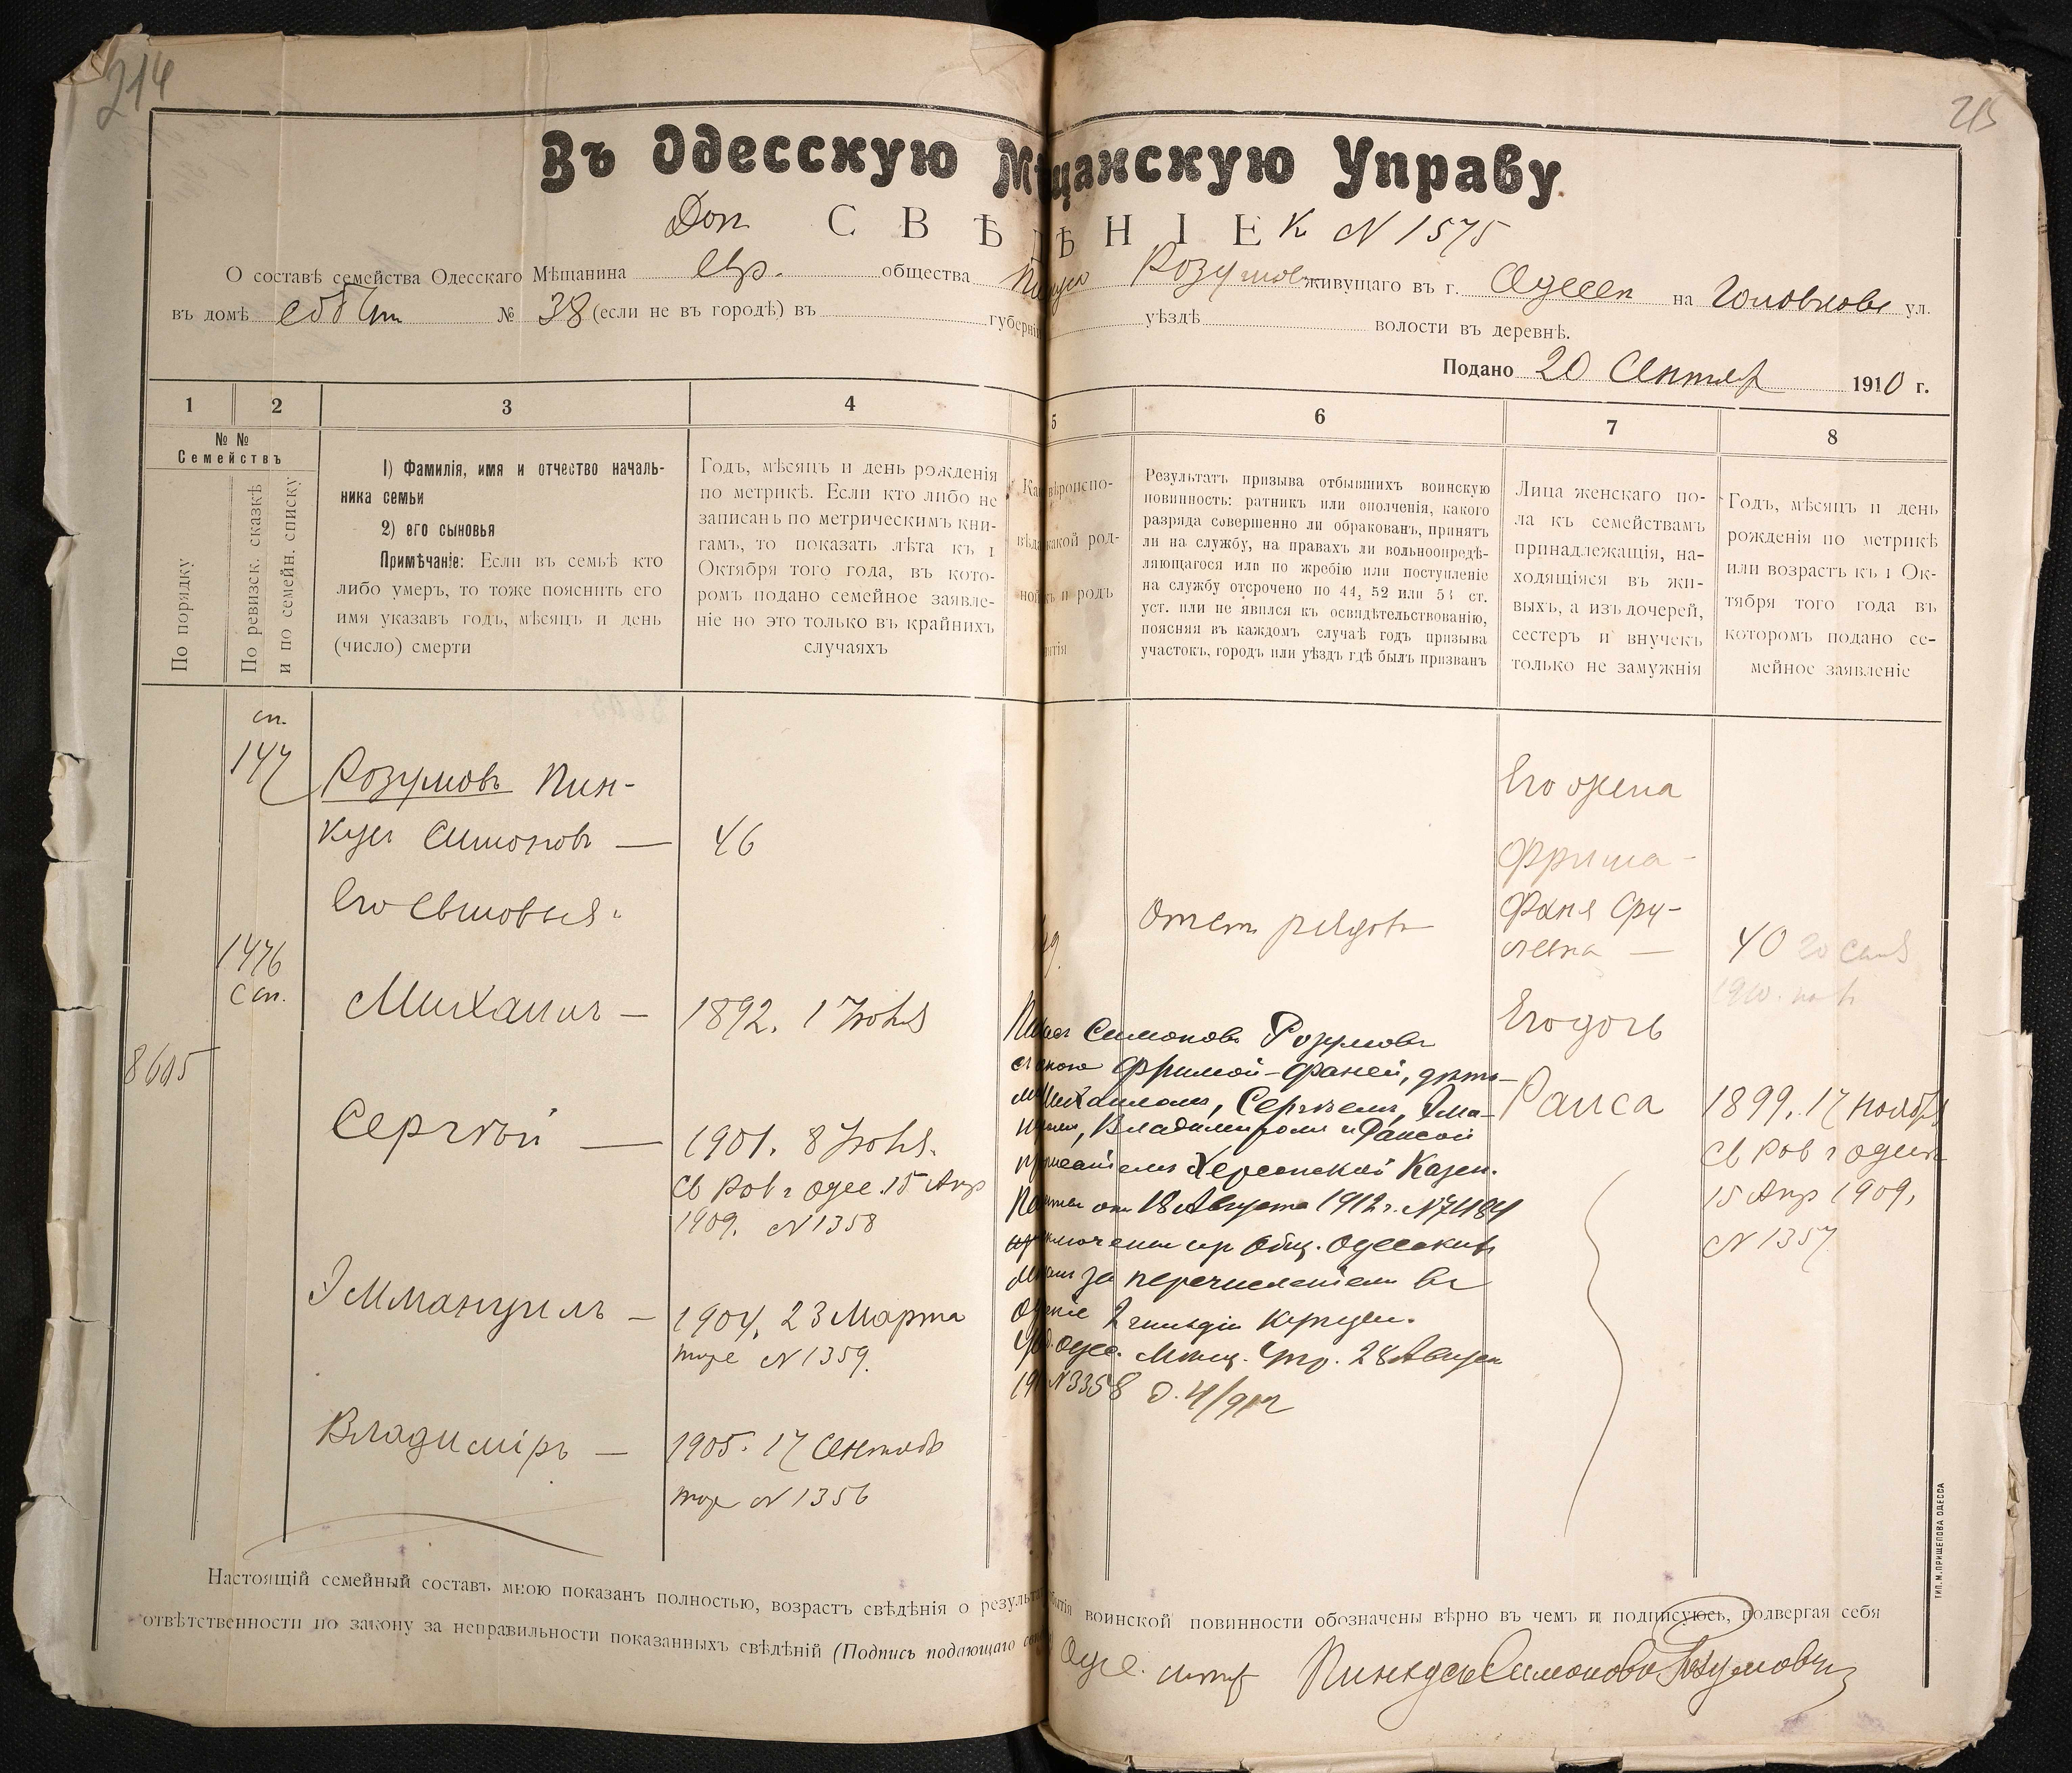 214
215
Въ Одесскую Мѣщанскую Управу
Доп. СВѢДѢНІЕ К N 1575
О составѣ семейства Одесскаго Мѣщанина Евр. общества Пинкуса Розумова живущаго въ г. Одессѣ на Головковс ул.
въ домѣ собств № 38 (если не въ городѣ) въ губерніи уѣздѣ волости въ деревнѣ.
Подано 20 Сентяб 1910 г.
1 2 3 4 5 6 7 8
№ №
Семействъ
По порядку
По ревизск. сказкѣ
и по семейн. списку
1) Фамилія, имя и отчество началь-
ника семьи
2) его сыновья
Примѣчаніе: Если въ семьѣ кто
либо умеръ, то тоже пояснить его
имя указавъ годъ, мѣсяцъ и день
(число) смерти
Годъ, мѣсяцъ и день рожденія
по метрикѣ. Если кто либо не
записанъ по метрическимъ кни-
гамъ, то показать лѣта къ 1
Октября того года, въ кото-
ромъ подано семейное заявле-
ніе но это только въ крайнихъ
случаяхъ
вѣроиспо-
какой род-
и родъ
Результатъ призыва отбывшихъ воинскую
повинность: ратникъ или ополченія, какого
разряда совершенно ли обракованъ, принятъ
ли на службу, на правахъ ли вольноопредѣ-
ляющагося или по жребію или поступленіе
на службу отсрочено по 44, 52 или 54 ст.
уст. или не явился къ освидѣтельствованію,
поясняя въ каждомъ случаѣ годъ призыва
участокъ, городъ или уѣздъ гдѣ былъ призванъ
Лица женскаго по-
ла къ семействамъ
принадлежащія, на-
ходящіяся въ жи-
выхъ, а изъ дочерей,
сестеръ и внучекъ
только не замужнія
Годъ, мѣсяцъ и день
рожденія по метрикѣ
или возрастъ къ 1 Ок-
тября того года въ
которомъ подано се-
мейное заявленіе
сп.
147
Розумовъ Пин-
кус Симоновъ — 46
Его сыновья:
1476
С сп.
Михаилъ — 1892. 1 Іюня
8605
Сергѣй — 1901. 8 Іюня.
Св Рав г Одес. 15 Апр
1909. N 1358
Эммануилъ — 1904, 23 Марта
тоже N 1359.
Владиміръ — 1905. 17 Сентяб
тоже N 1356
Отст рядов
Пинкус Симоновъ Розумовъ
съ женою Фримой-Фаней, дѣть-
ми Михаиломъ, Сергѣемъ, Эма-
нуилом, Владимиромъ и Раисой
Херсонской Казен.
Палаты от 18 Августа 1912 г. N 74184
исключены изъ Общ. Одесскихъ
Мѣщан за перечисленіем въ
Одесскіе 2 гильдіи Купцы.
Одес. Мѣщ. Упр. 28 Август
N 3358
Его жена
Фрима-
Фаня Сру-
левна — 40
Его дочь
Раиса 1899. 17 Ноября
Св Рав г Одессы
15 Апр 1909,
N 1357
Настоящій семейный составъ мною показанъ полностью, возрастъ свѣдѣнія о результатѣ отбытія воинской повинности обозначены вѣрно въ чемъ и подписуюсь, подвергая себя
отвѣтственности по закону за неправильности показанныхъ свѣдѣній (Подпись подающаго
Одес. Пинкусъ Симоновъ Розумовъ
ТИП. М. ПРИЩЕПОВА ОДЕССА